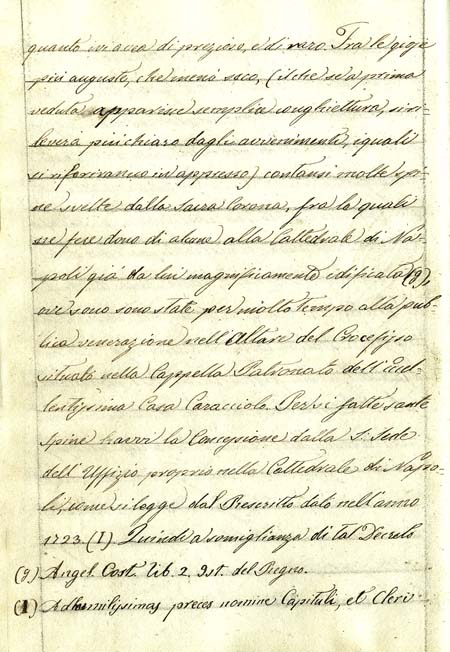 quanto ivi avea di prezioso, e di raro. Fra le gioje
più auguste, che menò seco, (il che se a prima
veduta apparisse semplice conghiettura, si ri=
leverà più chiaro dagli avvenimenti, i quali
si riferiranno in appresso) contansi molte spi=
ne svelte dalla Sacra Corona, fra le quali
ne fece dono di alcune alla Cattedrale di Na=
poli già da lui magnificamente edificata (g),
ove sono state per molto tempo alla pub=
blica venerazione nell'Altare del Crocefisso
situato nella Cappella Patronato dell'Eccel=
lentissima Casa Caracciolo. Per sì fatte sante
spine havvi la Concessione dalla S. Sede
dell'Uffizio proprio nella Cattedrale di Napo=
li, come si legge dal Rescritto dato nell'anno
1723. (1) Quindi a somiglianza di tal Decreto
(g) Angel. Cost. Lib. 2. Ist. del Regno.
(1) Ad humilissimas preces nomine Capituli, et Cleri=